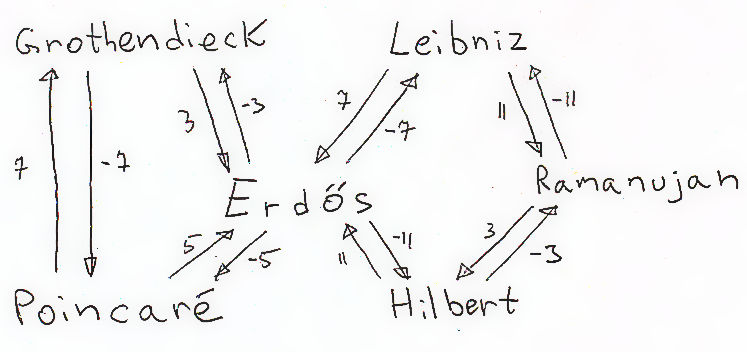 Grothendieck Leibniz
3 -3 7 -7 11 -11
7 -7
Erdős Ramanujan
5 -5 11 -11 3 -3
Poincaré Hilbert